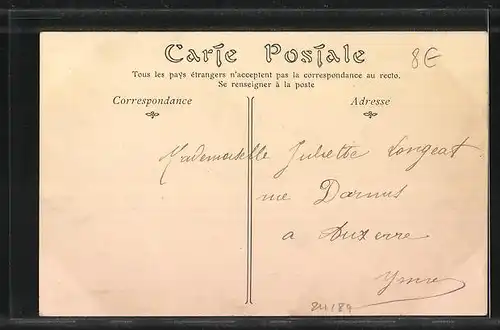 Carte Postale
8€
Tous les pays étrangers n'acceptent pas la correspondance au recto.
Se renseigner à la poste
Correspondance
Adresse
Mademoiselle Juliette Longeat
rue Darnus
a Auxerre
Yonne